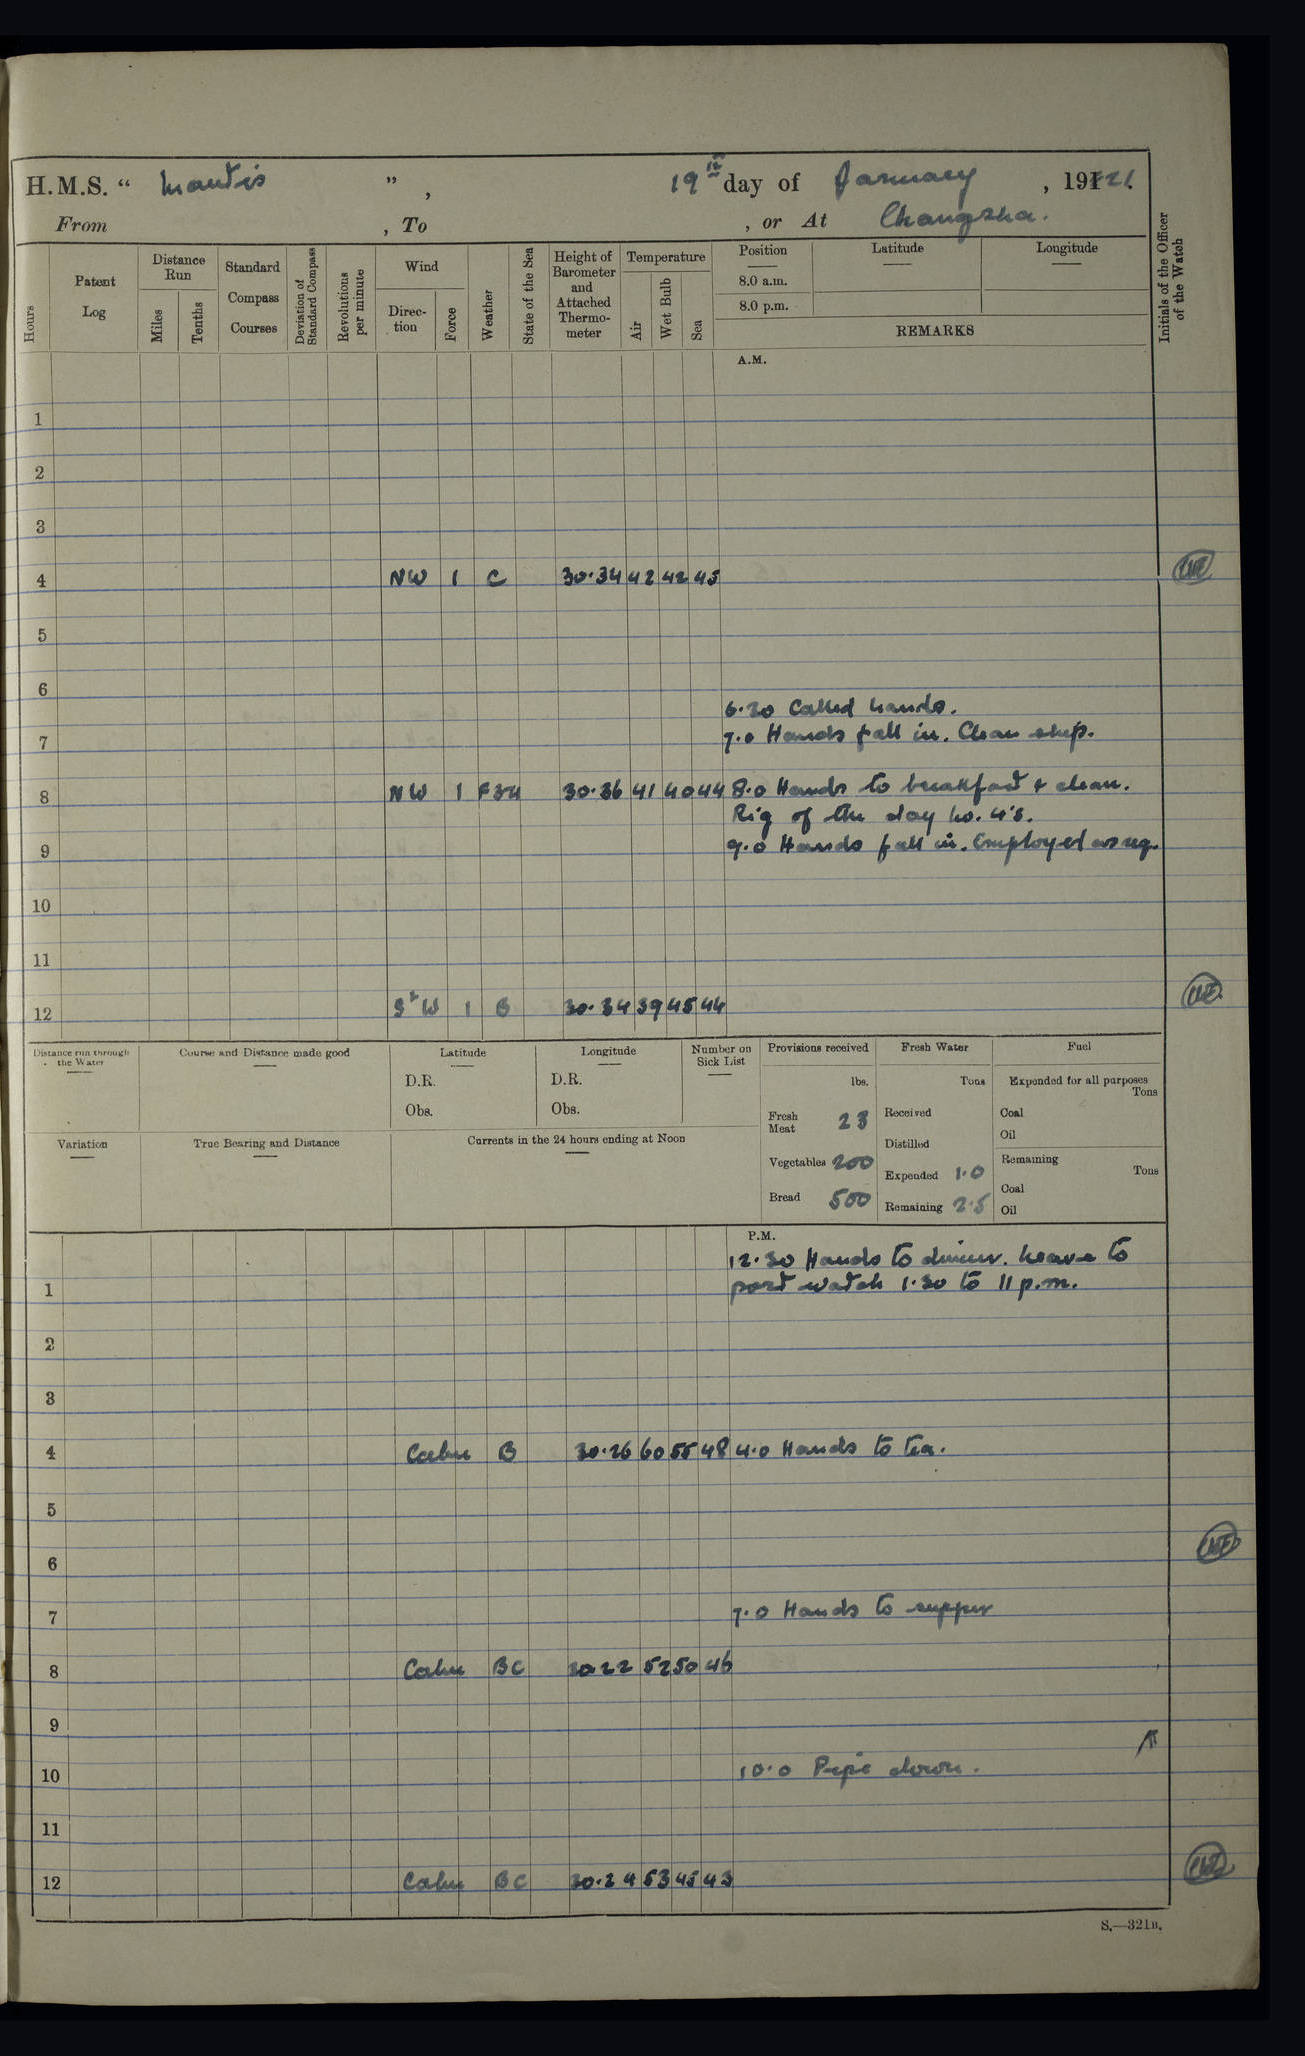 H.M.S. " Mantis " , 19th day of January , 1921.
From , To , or At Changsha.
Hours
Patent Log
Distance Run
Miles
Tenths
Standard Compass Courses
Deviation of Standard Compass
Revolutions per minute
Wind
Direction
Force
Weather
State of the Sea
Height of Barometer and Attached Thermometer
Temperature
Air
Wet Bulb
Sea
Position
8.0 a.m.
8.0 p.m.
Latitude
Longitude
REMARKS
Initials of the Officer of the Watch
A.M.
1
2
3
4 NW 1 C 30.34 42 42 45
5
6
6.30 Called hands.
7 7.0 Hands fall in. Clean ship.
8 NW 1 30.36 41 40 44 8.0 Hands to breakfast & clean.
Rig of the day No. 4's.
9 9.0 Hands fall in. Employed as req.
10
11
12 W 1 B 30.34 39 45 44
Distance run through the Water
Course and Distance made good
Latitude
D.R.
Obs.
Longitude
D.R.
Obs.
Number on Sick List
Provisions received
lbs.
Fresh Meat 23
Vegetables 200
Bread 500
Fresh Water
Tons
Received
Distilled
Expended 1.0
Remaining 2.5
Fuel
Expended for all purposes
Tons
Coal
Oil
Remaining
Tons
Coal
Oil
Variation
True Bearing and Distance
Currents in the 24 hours ending at Noon
P.M.
12.30 Hands to dinner. Leave to
1 port watch 1.30 to 11 p.m.
2
3
4 Calm B 30.26 60 55 48 4.0 Hands to tea.
5
6
7 7.0 Hands to supper
8 Calm BC 30.22 52 50 46
9
10 10.0 Pipe down.
11
12 Calm BC 30.24 53 45 43
S.—321B.